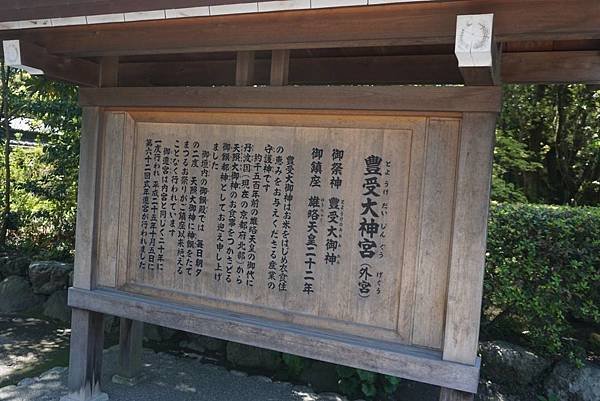 豊受大神宮（外宮）
とようけだいじんぐう
げくう
御祭神　豊受大御神
御鎮座　雄略天皇二十二年
豊受大御神はお米をはじめ衣食住
の恵みをお与えくださる産業の
守護神です
約千五百年前の雄略天皇の御代に
丹波国（現在の京都府北部）から
天照大御神のお食事をつかさどる
御饌都神としてお迎え申し上げ
ました
御垣内の御饌殿では　毎日朝夕
の二度　天照大御神に神饌をたて
まつるお祭りがご鎮座以来絶える
ことなく行われています
御遷宮は内宮と同じく二十年に
一度行われ　平成二十五年十月五日に
第六十二回式年遷宮が行われました